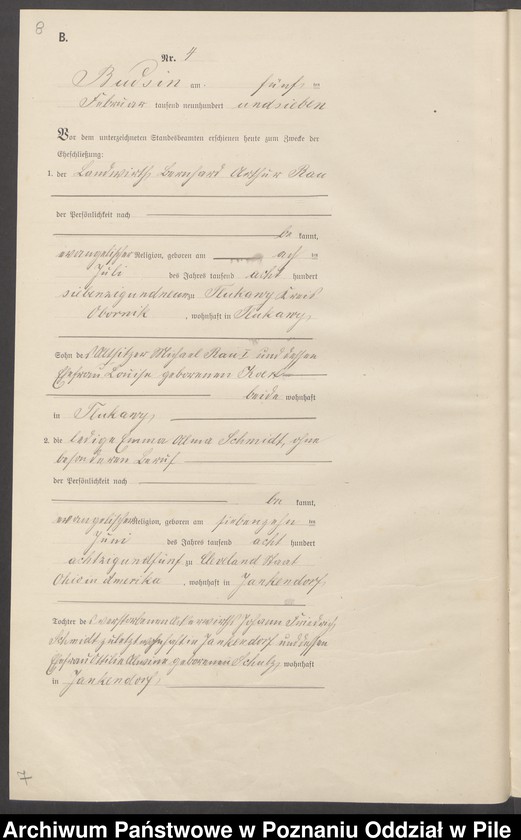 8
B.
Nr. 4
Budsin am fünf ten
Februar tausend neunhundert und sieben
Vor dem unterzeichneten Standesbeamten erschienen heute zum Zwecke der
Eheschließung:
1. der Landwirth Bernhard Arthur Rau
der Persönlichkeit nach
be kannt,
evangelischer Religion, geboren am ach ten
Juli des Jahres tausend acht hundert
siebenzigundneun zu Tlukawy Kreis
Obornik, wohnhaft in Tlukawy,
Sohn des Altsitzer Michael Rau I und dessen
Ehefrau Louise geborenen
beide wohnhaft
in Tlukawy,
2. die ledige Emma Alma Schmidt, ohne
besonderen Beruf
der Persönlichkeit nach
be kannt,
evangelischer Religion, geboren am siebenzehn ten
Juni des Jahres tausend acht hundert
achtzigundfünf zu Cleveland Staat
Ohio in Amerika, wohnhaft in Jankendorf,
Tochter des verstorbenen Ackerwirth Johann Friedrich
Schmidt zuletzt wohnhaft in Jankendorf und dessen
Ehefrau Ottilie Alwine geborenen Schulz, wohnhaft
in Jankendorf,
7
Archiwum Państwowe w Poznaniu Oddział w Pile